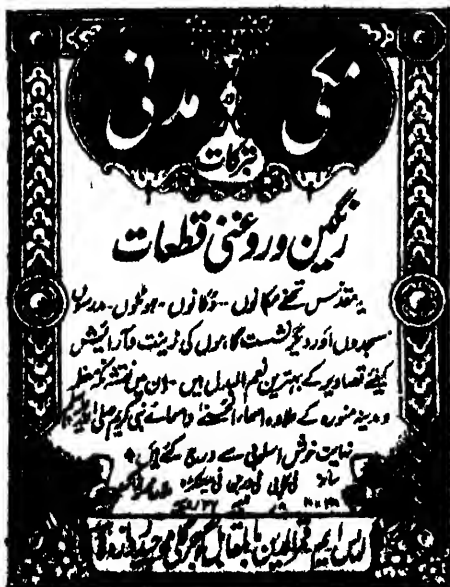 مکی و مدنی
تبرکات
رنگین و روغنی قطعات
یہ مقدس تحفے مکانوں - دُکانوں - ہوٹلوں - مدرسوں
مسجدوں اور دیگر نشست گاہوں کی زینت و آرائیش
کیلئے تصاویر کے بہترین نعم البدل ہیں - ان میں نقشہ مکہ معظمہ
و مدینہ منورہ کے علاوہ اسماء الحسنیٰ و اسمائے نبی کریم صلی اللہ علیہ وسلم
نہایت خوش اسلوبی سے درج کئے گئے ہیں
سائز فی کاپی فی درجن فی سینکڑہ
ایس ایم قمرالدین بالمقابل